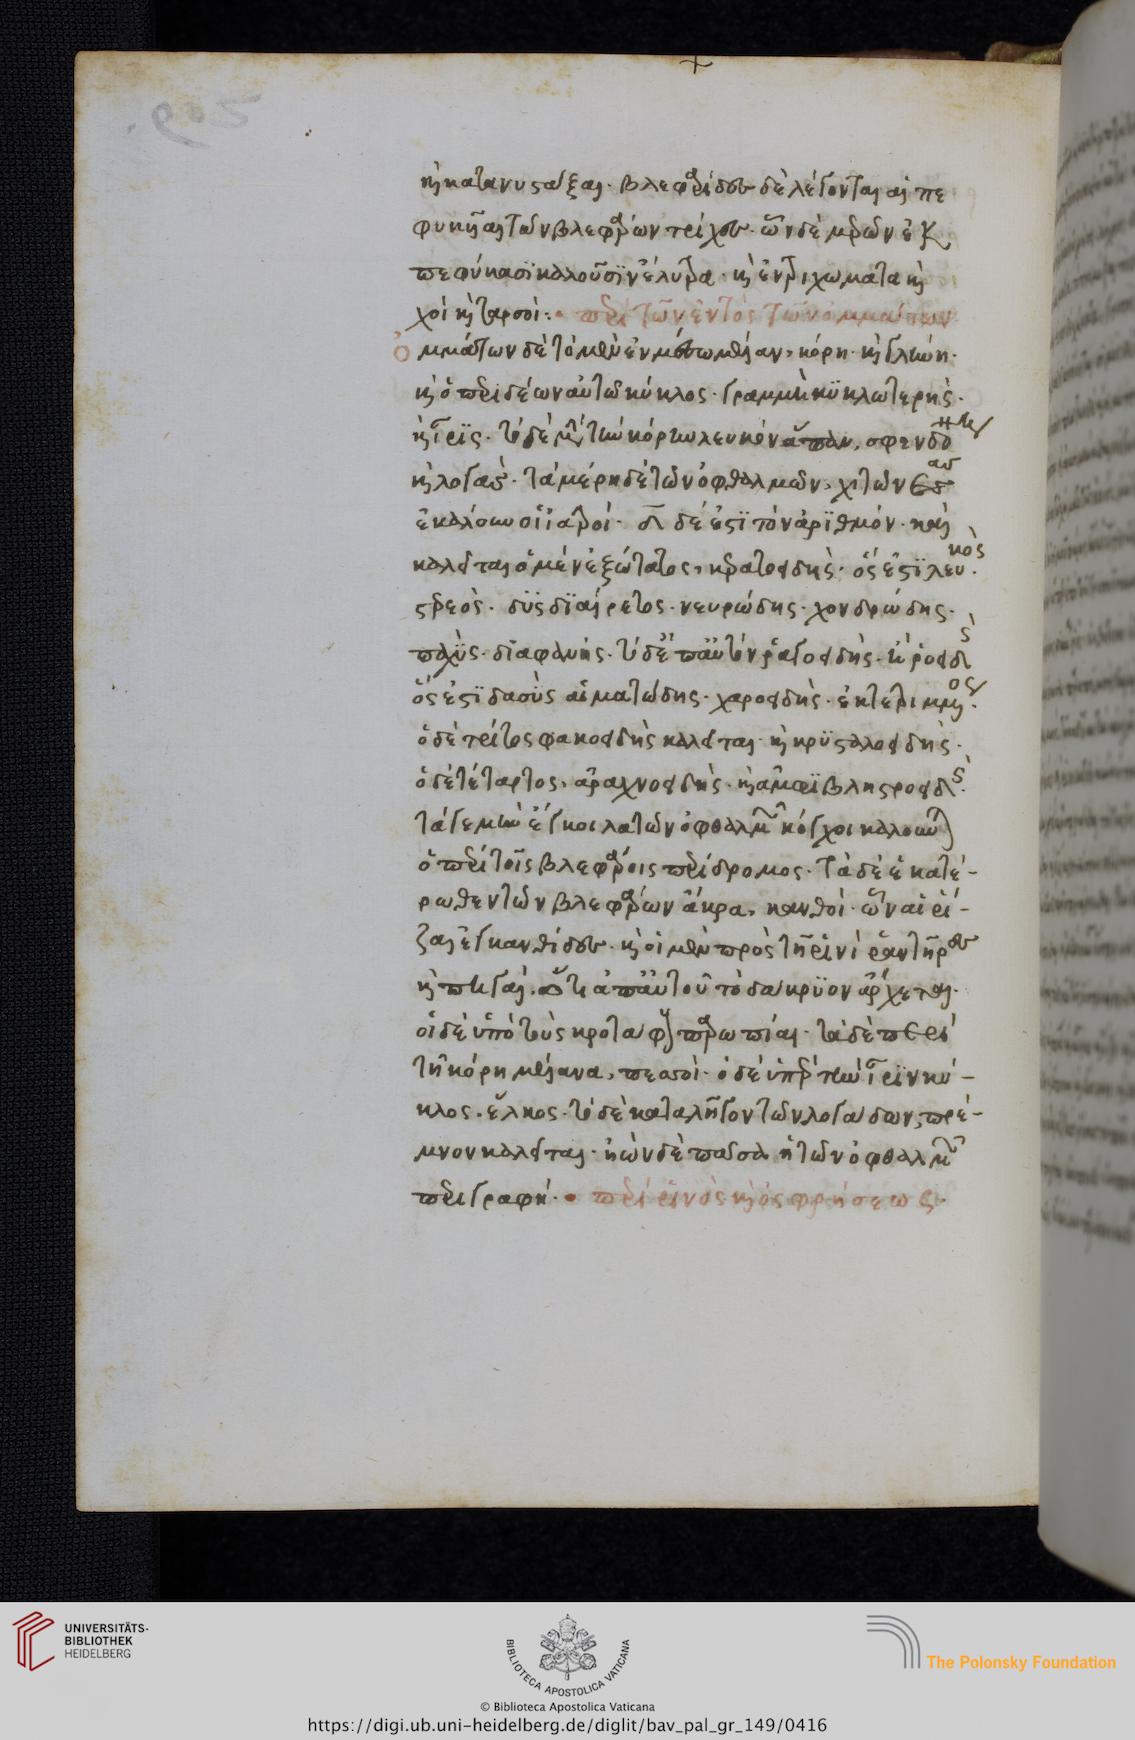 καὶ κατανυστάξαι· βλεφαρίδες δὲ λέγονται αἱ πε
φυκυῖαι τῶν βλεφάρων τρίχες· ὧν δὲ μερῶν ἐκ
πεφύκασϊ καλοῦσϊν ἔλυτρα· καὶ ἐντριχώματα καὶ
χοὶ καὶ ταρσοὶ:· περὶ τῶν ἐντὸς τῶν ὀμμάτων
ὀμμάτων δὲ τὸ μὲν ἐν μέσω μέλαν, κόρη· καὶ γλήνη·
καὶ ὁ περιθέων αὐτῶ κύκλος· γραμμὴ κϋκλωτερὴς·
καὶ ἶρϊς· τὸ δὲ μετὰ τὴν κόρην λευκὸν ἅπαν, σφενδόνη
καὶ λογὰς· τὰ μέρη δὲ τῶν ὀφθαλμῶν, χιτῶνας
ἐκάλεσαν οἱ ἰατροὶ· δ δέ ἐστϊ τὸν ἀρϊθμόν· καὶ
καλεῖται ὁ μὲν ἐξώτατος, κερατοειδὴς· ὅς ἐστϊ λευκὸς·
στερεὸς· δϋσδϊαίρετος· νευρώδης· χονδρώδης·
παχὺς· δϊαφανής· ὁ δὲ ὑπ' αὐτὸν ῥαγοειδὴς· κιρροειδὴς
ὅς ἐστϊ δασὺς αἱματώδης· χοροειδὴς· ἐκτετριμμένος·
ὁ δὲ τρίτος φακοειδὴς καλεῖται· καὶ κρϋσταλοειδὴς·
ὁ δὲ τέταρτος, ἀραχνοειδὴς· καὶ ἀμφϊβληστροειδὴς·
τά γε μὴν ἔγκοιλα τῶν ὀφθαλμῶν κόγχοι καλοῦνται
ὁ περὶ τοῖς βλεφάροις περίδρομος· τὰ δὲ ἑκατέ-
ρωθεν τῶν βλεφάρων ἄκρα, κανθοὶ· ὧν αἱ ῥί-
ζαι ἐγκανθίδες· καὶ οἱ μὲν πρὸς τῆ ῥινὶ ῥαντῆρες
καὶ πηγαὶ· ὅτι ἀπ' αὐτοῦ τὸ δάκρϋον ἄρχεται·
οἱ δὲ ὑπὸ τοὺς κροτάφους παρωπίαι· τὰ δὲ περὶ
τῆ κόρη μέλανα, πεσσοὶ· ὁ δὲ ὑπὲρ τὴν ἶρϊν κύ-
κλος· ἕλκος· τὸ δὲ καταλῆγον τῶν λογάδων, πρέ-
μνον καλεῖται· ἰὼν δὲ πᾶσα ἡ τῶν ὀφθαλμῶν
περιγραφή· περὶ ῥινὸς καὶ ὀσφρήσεως·
UNIVERSITÄTS-
BIBLIOTHEK
HEIDELBERG
BIBLIOTECA APOSTOLICA VATICANA
The Polonsky Foundation
© Biblioteca Apostolica Vaticana
https://digi.ub.uni-heidelberg.de/diglit/bav_pal_gr_149/0416